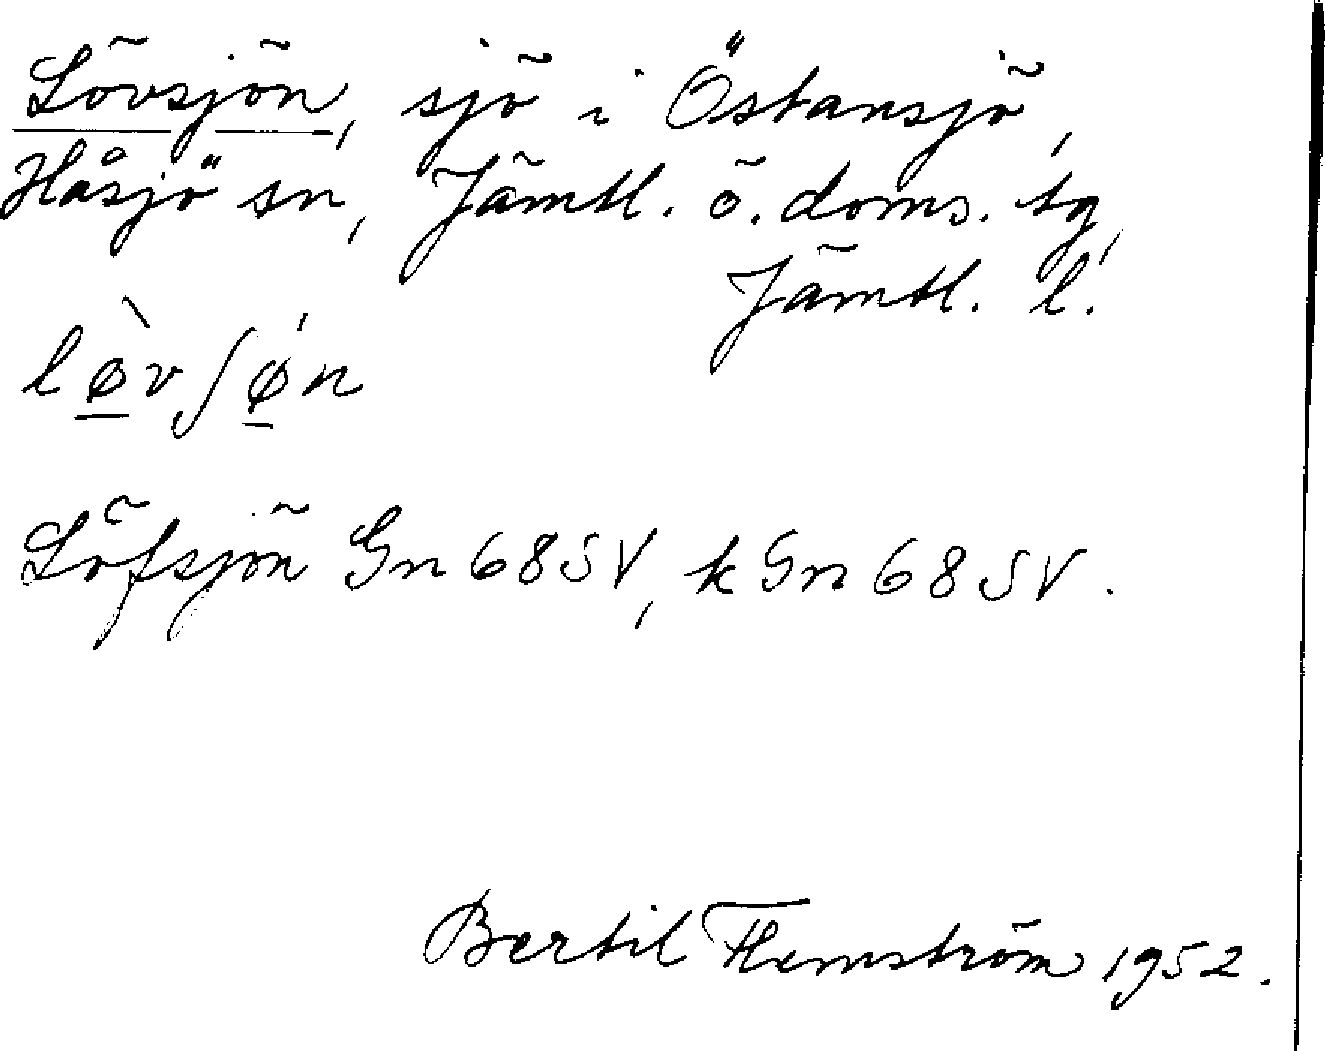 Lövsjön, sjö i Östansjö,
Håsjö sn, Jämtl. ö. doms. tg,
Jämtl. l.
lø̱̀vʃǿ̱n
Löfsjön Gn 68 SV, k Gn 68 SV.
Bertil Flemström 1952.